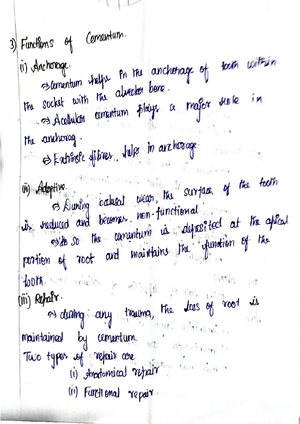 3) Functions of Cementum.
(i) Anchorage.
⇒ Cementum helps in the anchorage of tooth within
the socket with the alveolar bone.
⇒ Acellular cementum plays a major role in
the anchorag.
⇒ Extrinsic fibres helps in anchorage.
(ii) Adaptive.
⇒ During occlusal wear, the surface of the tooth
is reduced and becomes non-functional
⇒ so the cementum is deposited at the apical
portion of root and maintains the function of the
tooth.
(iii) Repair.
⇒ during any trauma, the loss of root is
maintained by cementum
Two types of repair are
(i) Anatomical repair
(ii) Functional repair.